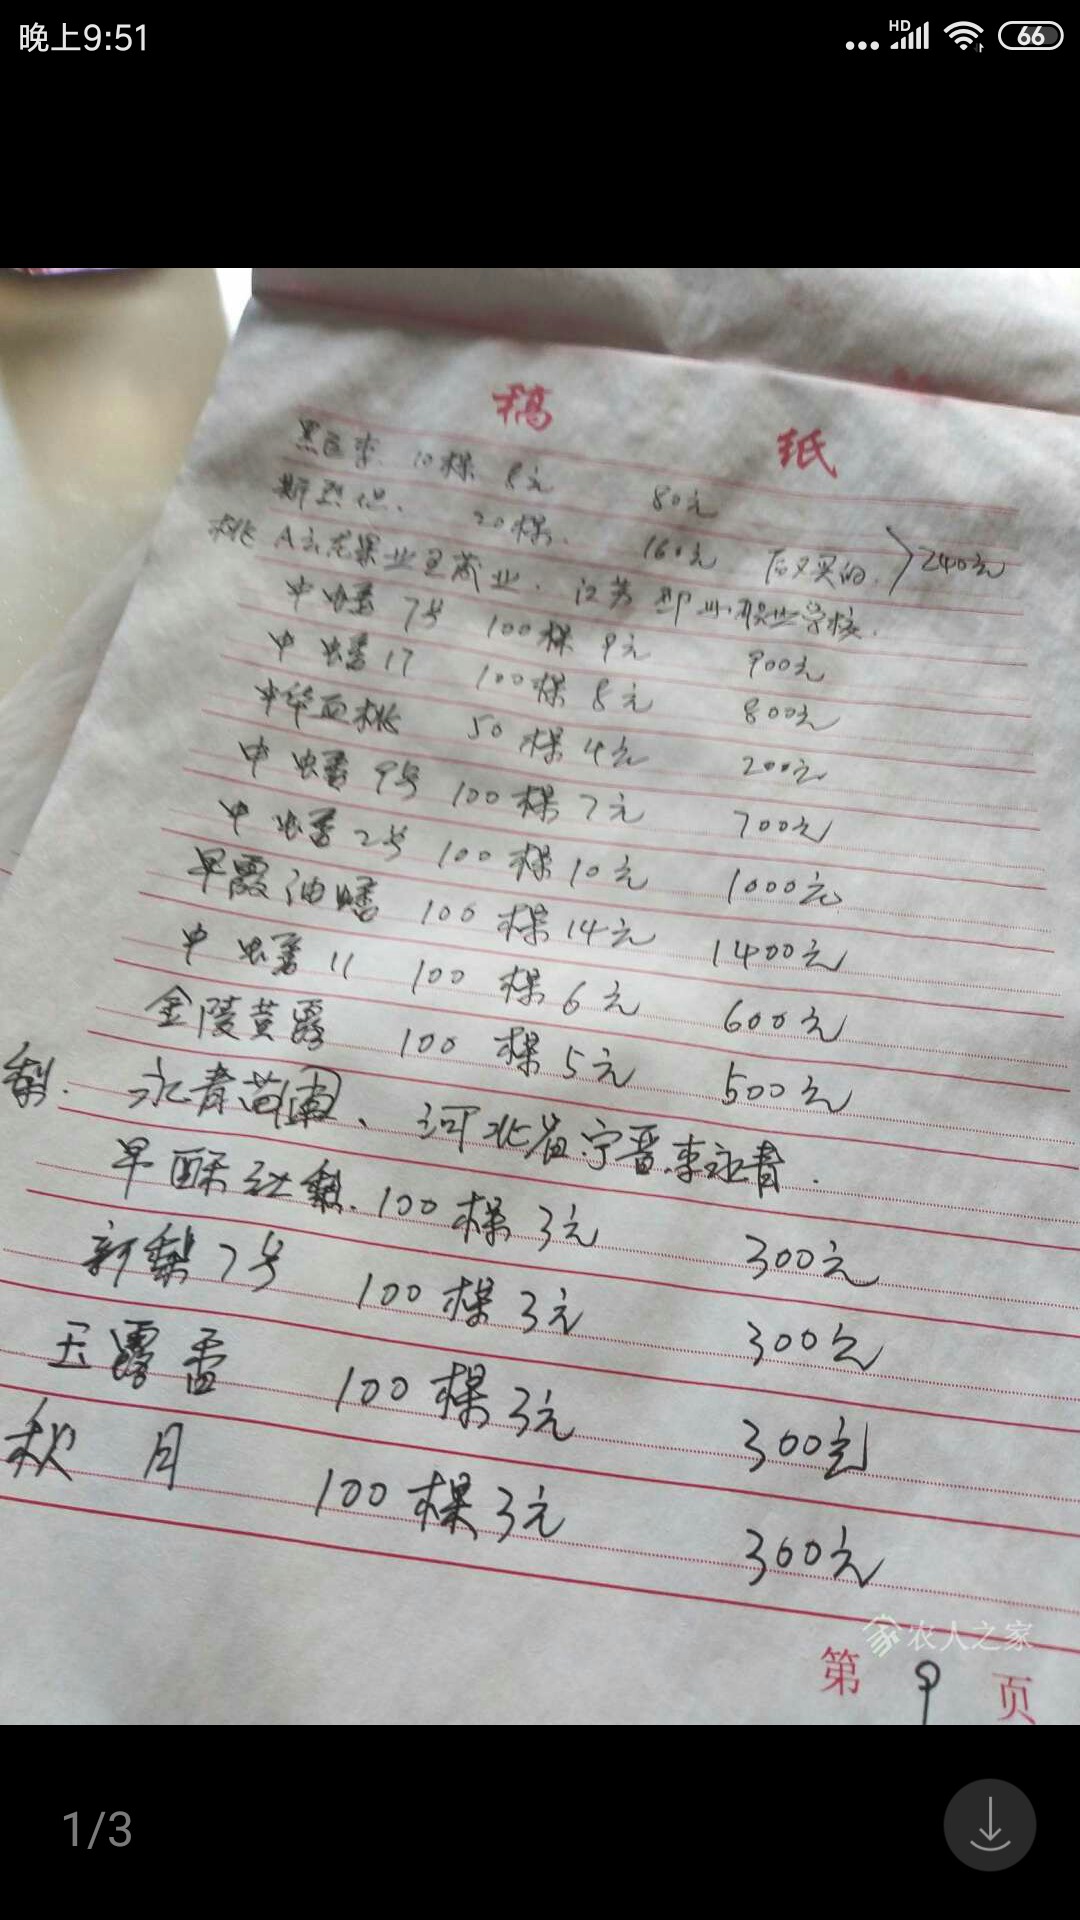 晚上9:51
HD
66
稿 纸
黑巨李. 10棵 8元 80元
20棵. 160元 后又买的. 240元
桃 A云龙果业王茂业. 江苏邳州职业学校.
中蟠7号 100棵 9元 900元
中蟠17 100棵 8元 800元
中华血桃 50棵 4元 200元
中蟠9号 100棵 7元 700元
中蟠2号 100棵 10元 1000元
早霞油蟠 100棵 14元 1400元
中蟠11 100棵 6元 600元
金陵黄露 100棵 5元 500元
梨. 永青苗圃、河北省宁晋李永青.
早酥红梨. 100棵 3元 300元
新梨7号 100棵 3元 300元
玉露香 100棵 3元 300元
秋月 100棵 3元 300元
农人之家
第 9 页
1/3